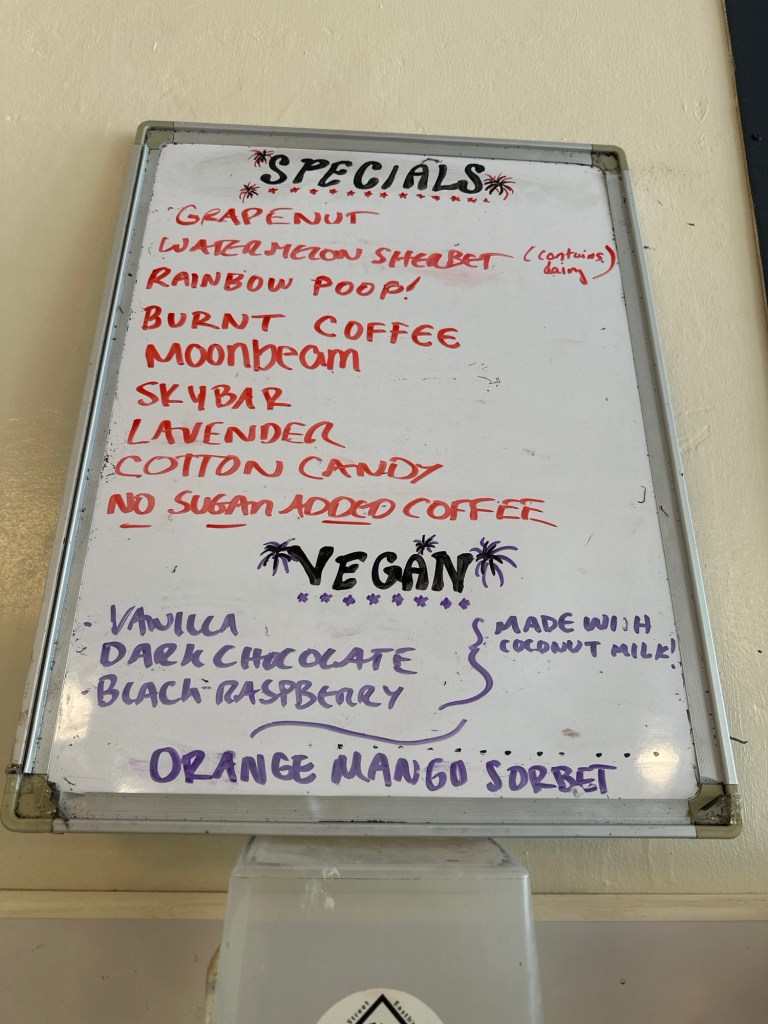 SPECIALS
GRAPENUT
WATERMELON SHERBET (contains dairy)
RAINBOW POOP!
BURNT COFFEE
Moonbeam
SKYBAR
LAVENDER
COTTON CANDY
NO SUGAR ADDED COFFEE
VEGAN
- VANILLA
DARK CHOCOLATE
- BLACK RASPBERRY
MADE WITH
COCONUT MILK!
ORANGE MANGO SORBET
Street